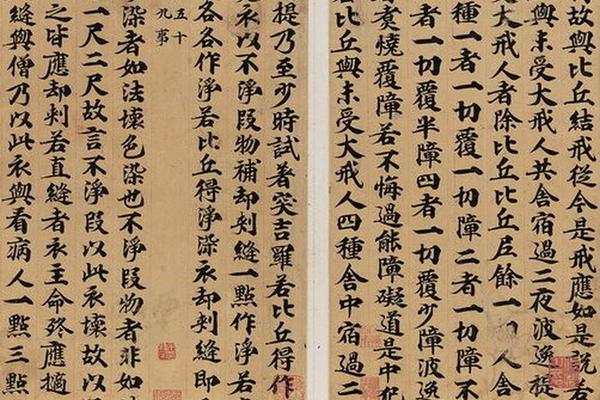 故與比丘結戒從今是戒應如是說若
與未受大戒人共舍宿過二夜波逸提
大戒人者除比丘比丘尼餘一切人舍
種一者一切覆一切障二者一切障不
者一切覆半障四者一切覆少障波逸
者煑燒覆障若不悔過能障礙道是中犯
若比丘與未受大戒人四種舍中宿過二
提乃至少時試著突吉羅若比丘得作
衣以不淨段物補却刺縫一點作淨若
各各作淨若比丘得淨染衣却刺縫即
五十
九事
染者如法壞色染也不淨段物者非如
一尺二尺故言不淨段以此衣壞故以
之皆應却刺若直縫者衣主命終應擿
縫與僧乃以此衣與看病人一點三點